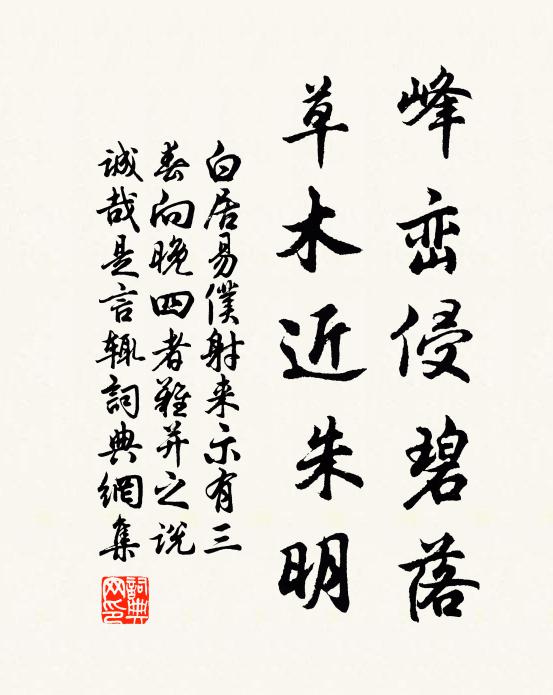 峰峦侵碧落
草木近朱明
白居易僕射来示有三
春向晚四者難并之说
誠哉是言辄詞典網集
詞典網印